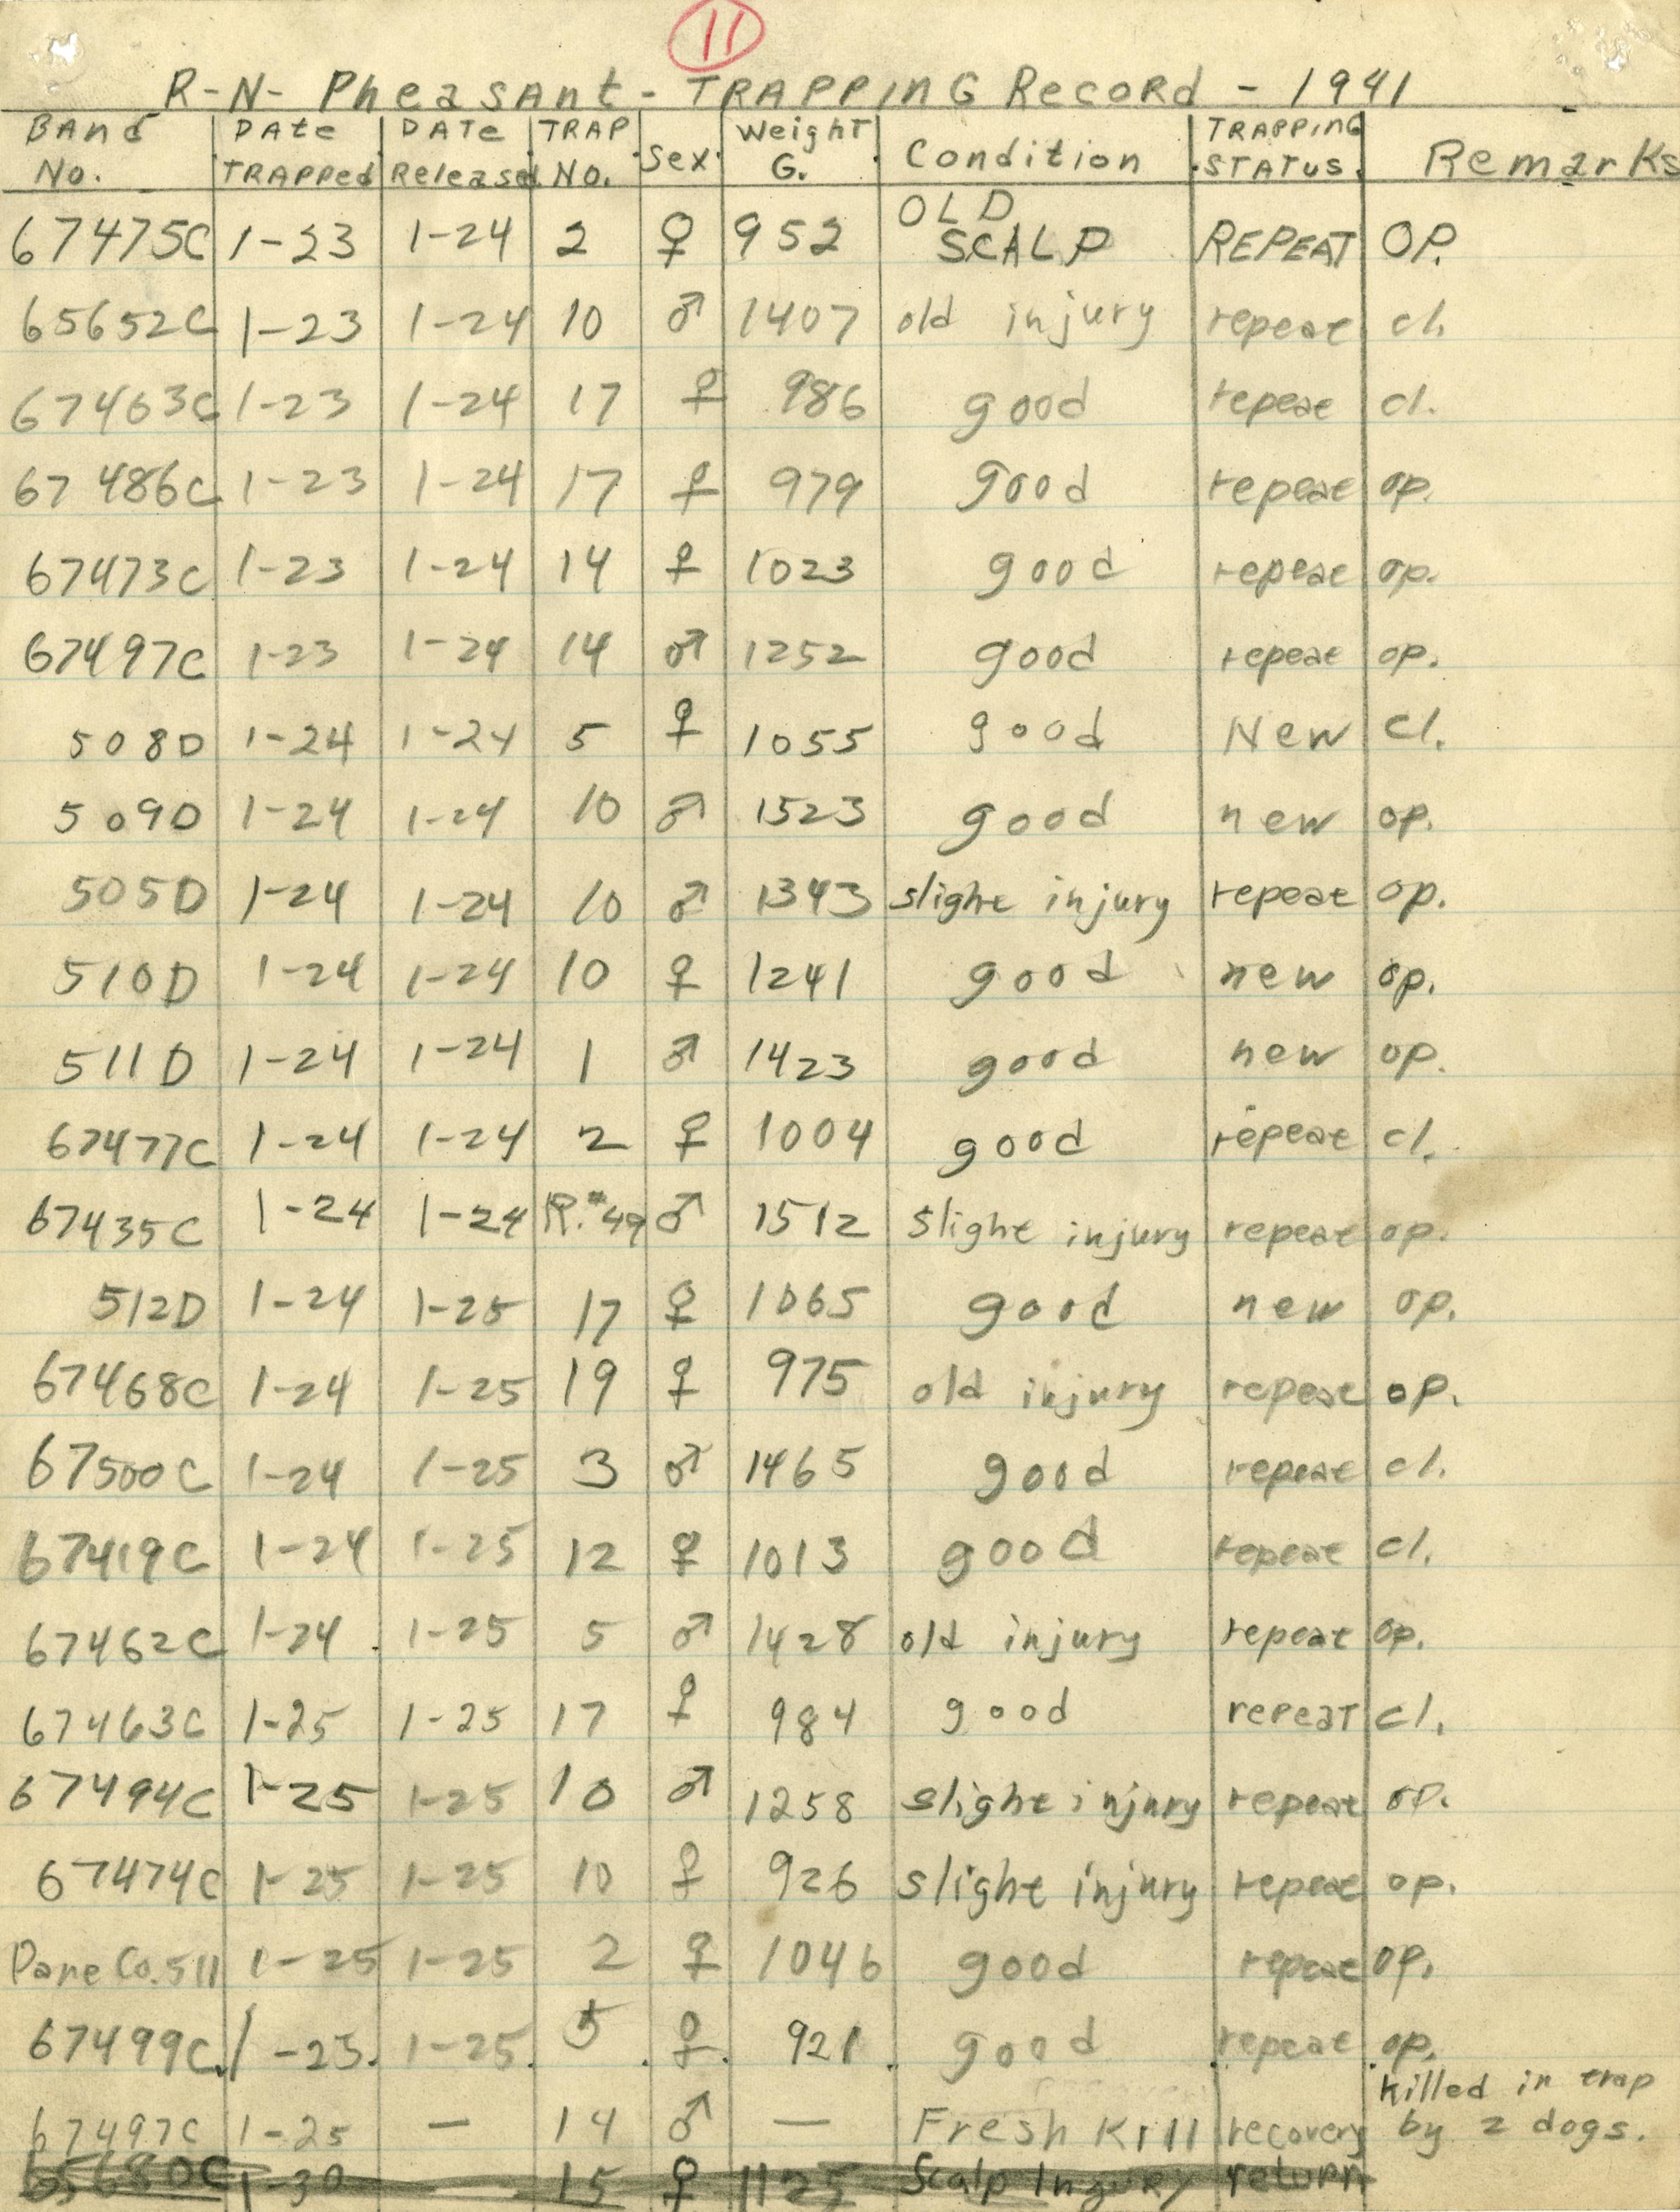 11
R-N- Pheasant - TRAPPING Record - 1941
Band No. DATE TRAPPed DATE Released TRAP No. Sex Weight G. Condition TRAPPING STATUS Remarks
67475C 1-23 1-24 2 ♀ 952 OLD SCALP REPEAT OP.
65652C 1-23 1-24 10 ♂ 1407 old injury repeat cl.
67463C 1-23 1-24 17 ♀ 986 good repeat cl.
67486C 1-23 1-24 17 ♀ 979 good repeat op.
67473C 1-23 1-24 14 ♀ 1023 good repeat op.
67497C 1-23 1-24 14 ♂ 1252 good repeat op.
508D 1-24 1-24 5 ♀ 1055 good New cl.
509D 1-24 1-24 10 ♂ 1523 good new op.
505D 1-24 1-24 10 ♂ 1343 slight injury repeat op.
510D 1-24 1-24 10 ♀ 1241 good new op.
511D 1-24 1-24 1 ♂ 1423 good new op.
67477C 1-24 1-24 2 ♀ 1004 good repeat cl.
67435C 1-24 1-24 R.#49 ♂ 1512 slight injury repeat op.
512D 1-24 1-25 17 ♀ 1065 good new op.
67468C 1-24 1-25 19 ♀ 975 old injury repeat op.
67500C 1-24 1-25 3 ♂ 1465 good repeat cl.
67419C 1-24 1-25 12 ♀ 1013 good repeat cl.
67462C 1-24 1-25 5 ♂ 1428 old injury repeat op.
67463C 1-25 1-25 17 ♀ 984 good repeaT cl.
67494C 1-25 1-25 10 ♂ 1258 slight injury repeat op.
67474C 1-25 1-25 10 ♀ 926 slight injury repeat op.
Dane Co. 511 1-25 1-25 2 ♀ 1046 good repeat op.
67499C 1-25 1-25 5 ♀ 921 good repeat op.
67497C 1-25 — 14 ♂ — Fresh Kill recovery killed in trap by 2 dogs.
65680C 1-30 15 ♀ 1125 Scalp Ingury return